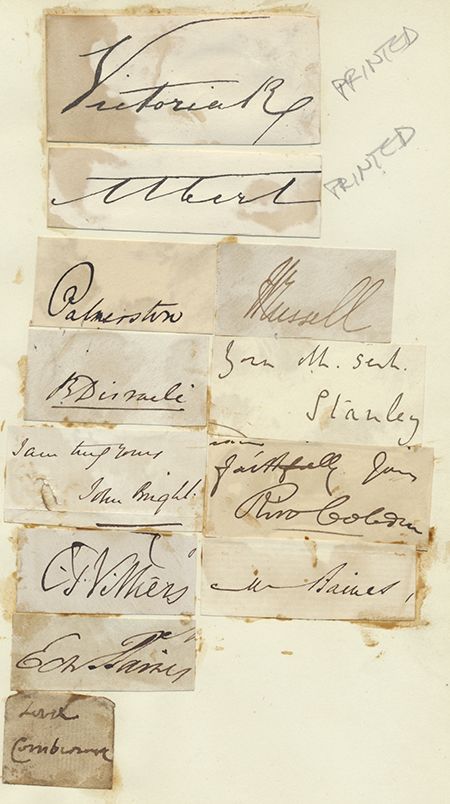 Victoria R
PRINTED
Albert
PRINTED
Palmerston
J Russell
B Disraeli
Your M. Sert.
Stanley
I am truly yours
John Bright
faithfully Yours
Richd Cobden
C. P. Villiers
M Baines,
Edw Baines
Lord
Combermere